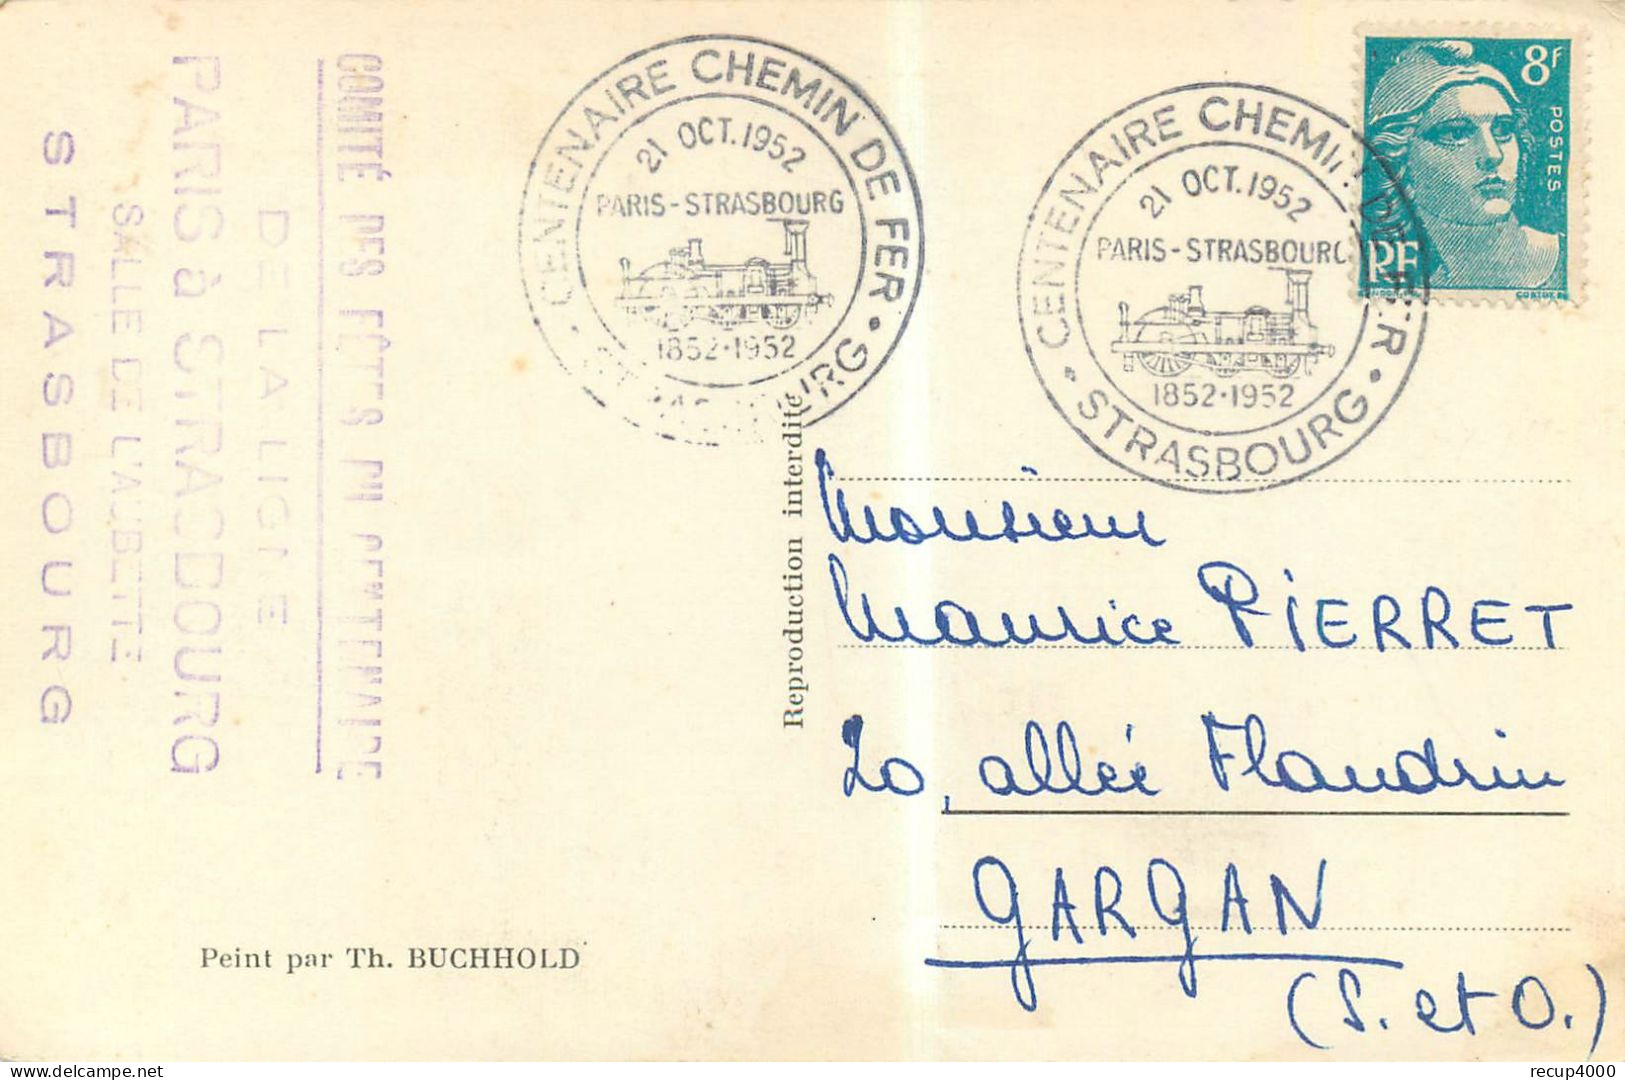 COMITÉ DES FÊTES DU CENTENAIRE
DE LA LIGNE
PARIS à STRASBOURG
SALLE DE L'AUBETTE
STRASBOURG
CENTENAIRE CHEMIN DE FER
21 OCT. 1952
PARIS - STRASBOURG
1852 · 1952
STRASBOURG
CENTENAIRE CHEMIN DE FER
21 OCT. 1952
PARIS - STRASBOURG
1852 · 1952
STRASBOURG
8F
POSTES
RF
GANDON
CORTOT
Reproduction interdite
Monsieur
Maurice PIERRET
20, allée Flandrin
GARGAN
(S. et O.)
Peint par Th. BUCHHOLD
recup4000